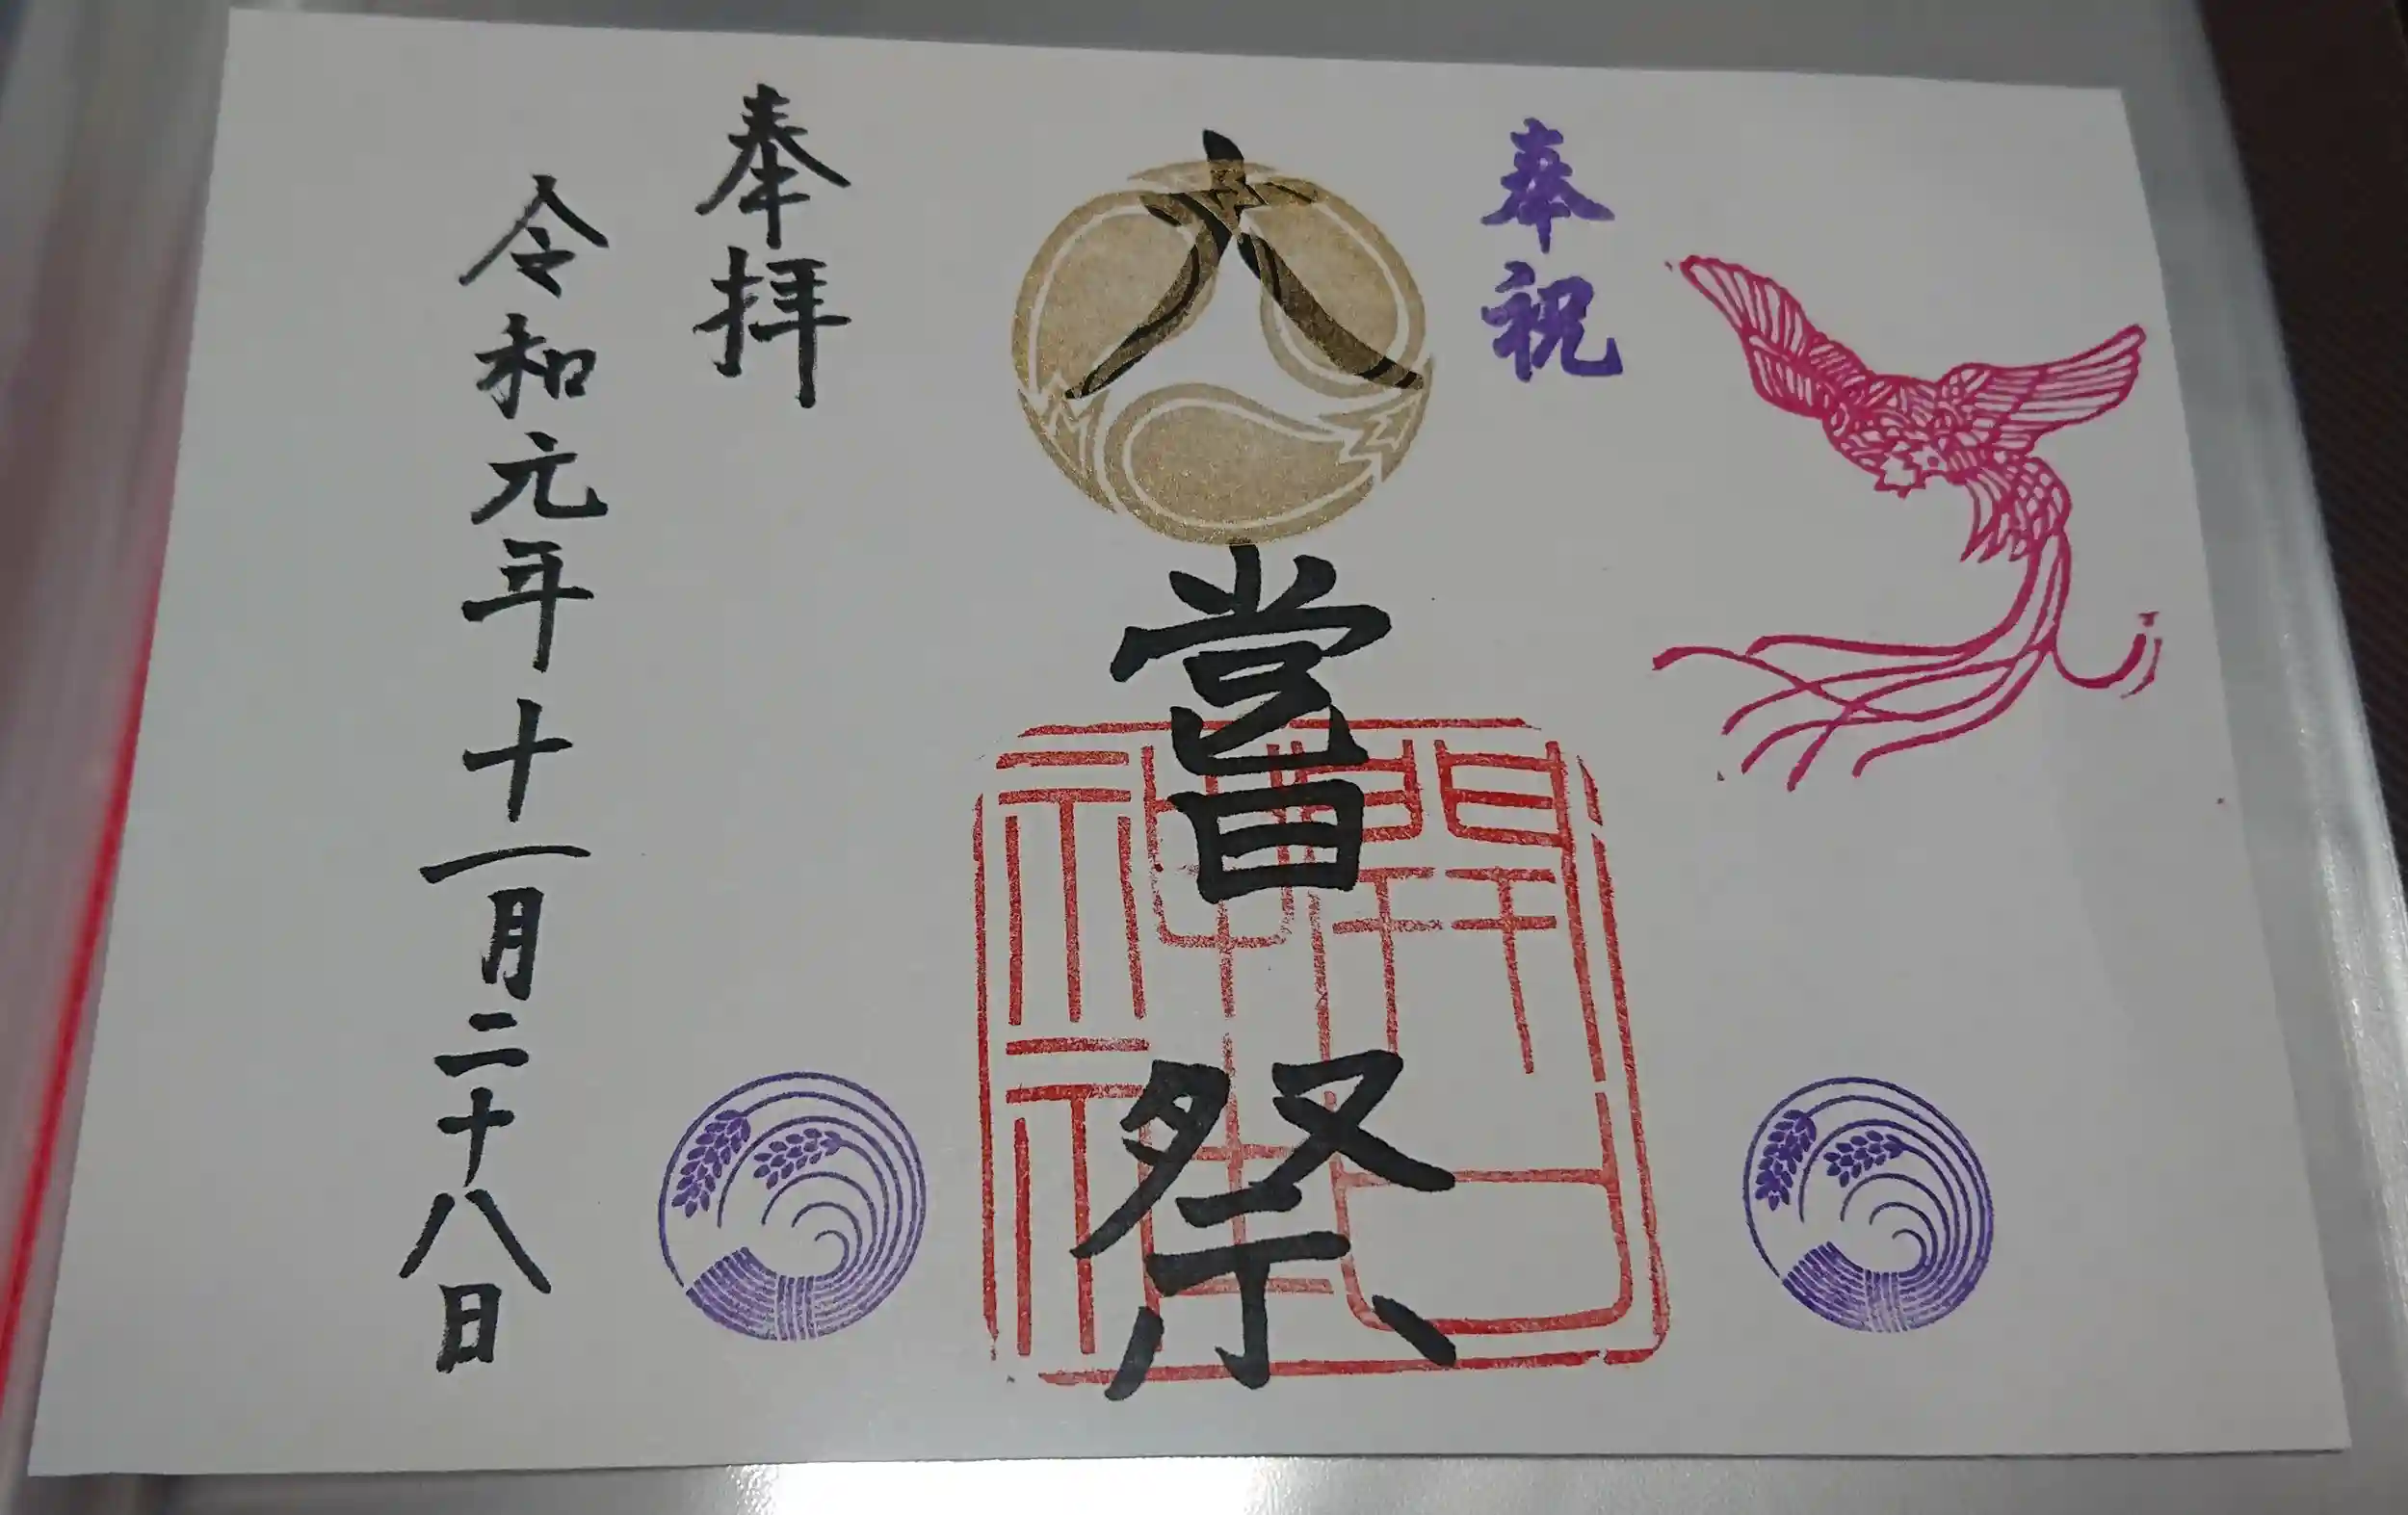 奉祝
大嘗祭
開口
神社
奉拝
令和元年十一月二十八日